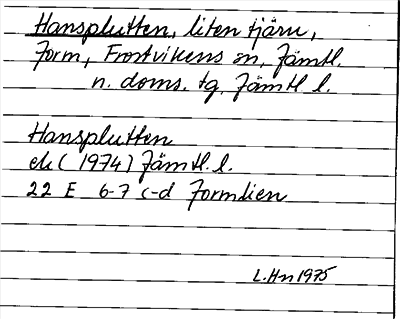 Hansplutten, liten tjärn,
Form, Frostvikens sn, Jämtl.
n. doms. tg, Jämtl l.
Hansplutten
ek (1974) Jämtl. l.
22 E 6-7 c-d Formlien
L. Hn 1975